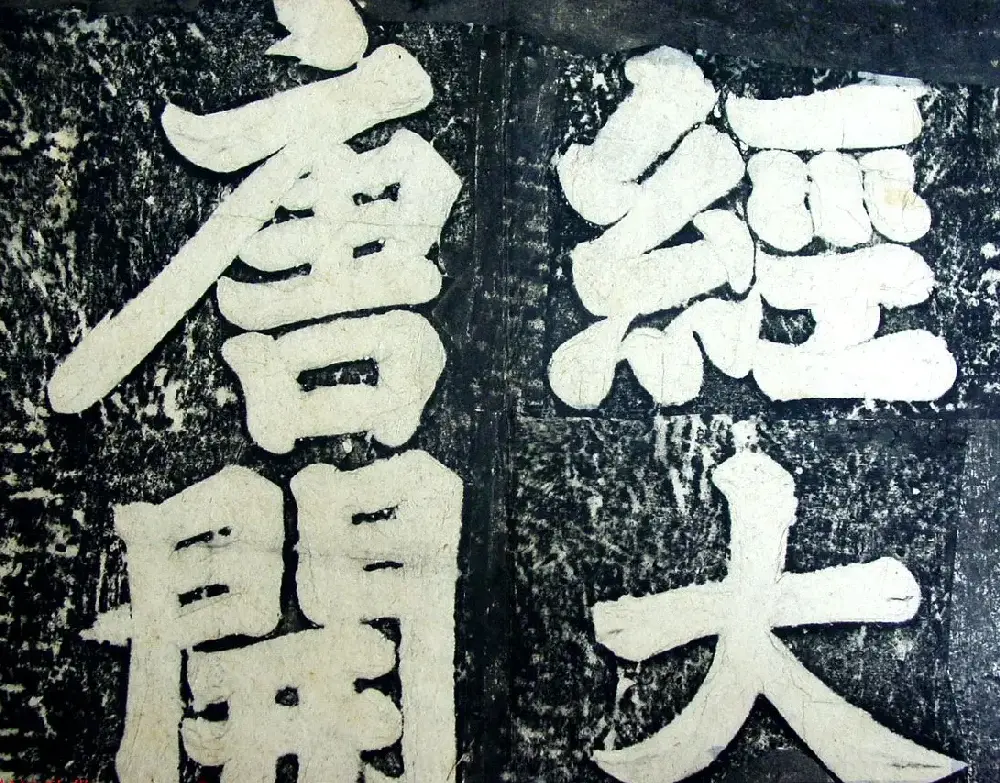 經大
唐開